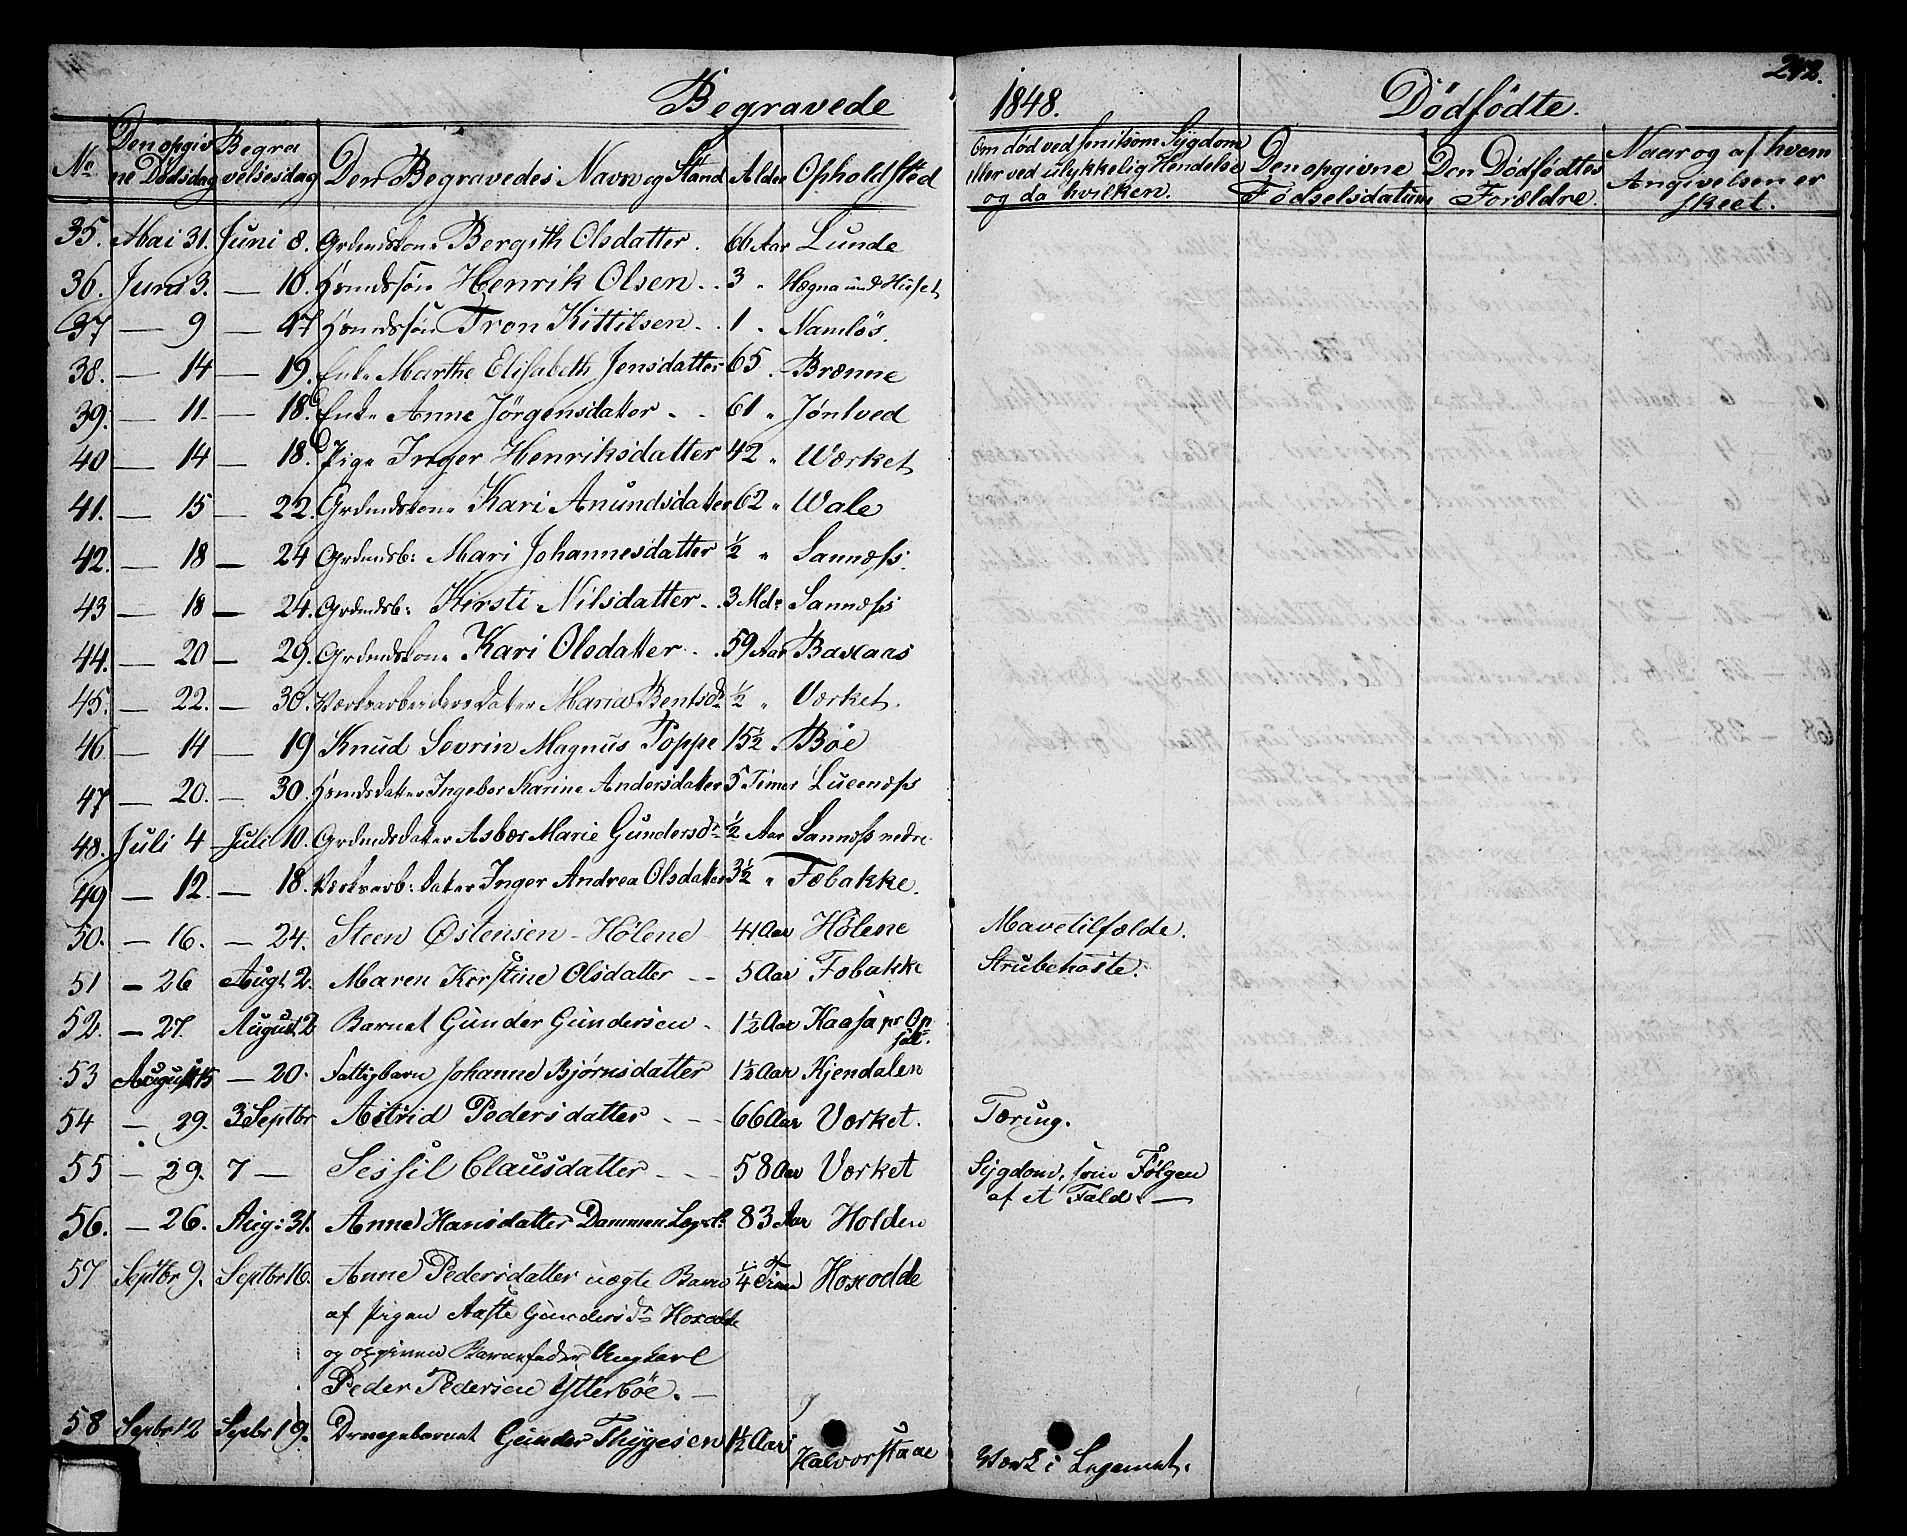 242.
Begravede 1848. Dødfødte.
No Den opgivne Dødsdag Begravelsesdag Den Begravedes Navn og Stand Alder Opholdsted Om død ved smitsom Sygdom eller ved ulykkelig Hendelse og da hvilken. Den opgivne Fødselsdatum Den Dødfødtes Forældre. Naar og af hvem Angivelsen er skeet.
35. Mai 31. Juni 8. Grdmdskone Bergith Olsdatter. 66 Aar Lunde
36. Juni 3. — 10. Hsmdssøn Henrik Olsen . . 3 " Hægna
37 — 9 — 17 Hsmdssøn Tron Kittilsen . . 1 " Namløs.
38. — 14 — 19. Enke Marthe Elisabeth Jensdatter 65 . Brænne
39. — 11. — 18. Enke Anne Jørgensdatter . . 61 " Jøntved
40 — 14 — 18. Pige Inger Henriksdatter 42 " Wærket
41. — 15 — 22. Grdmdskone Kari Anundsdatter 62 " Wale
42. — 18 — 24 Grdmdsb: Mari Johannesdatter ½ " Sannæss.
43 — 18 — 24. Grdmdsb: Kirsti Nilsdatter . . 3 Mdr Sannæss
44. — 20 — 29. Grdmdskone Kari Olsdatter . . 59 Aar Baxaas
45. — 22. — 30. Værksarbeidersdatter Maria Bentsdr ½ " Værket.
46 — 14 — 19 Knud Sevrin Magnus Poppe 15½ " Bøe
47 — 20. — 30. Hsmdsdatter Ingebor Karine Andersdatter 5 Timer Lucenæss
48. Juli 4 Juli 10. Grdmdsdatter Asbør Marie Gundersdr ½ Aar Sannæss nedre
49 — 12. — 18. Værksarb: datter Inger Andrea Olsdatter 3½ " Fæbakke.
50. — 16. — 24. Steen Østensen - Hølene 41 Aar Hølene Mavetilfælde.
51 — 26 Augt 2. Maren Kirstine Olsdatter — 5 Aar Fobakke Strubehoste.
52. — 27. August 2 Barnet Gunder Gundersen . 1½ Aar Kaasa
53 August 15 — 20. Fattigbarn Johanne Bjørnsdatter 1½ Aar Kjendalen
54 — 29. 3 Septbr Astrid Pedersdatter — 66 Aar Værket. Tæring.
55 — 29. 7 — Sessil Clausdatter — 58 Aar Værket Sygdom, som Følgen
af et Fald. —
56. — 26. Aug: 31. Anne Hansdatter Dammen Lægsl: 83 Aar Holden
57 Septbr 9. Septbr 16. Anne Pedersdatter uægte Barn ¼ Time Hoxodde
af Pigen Aaste Gundersdr Hoxodde
og opgiven Barnefader Ungkarl
Peder Pedersen Ytterbøe. —
58 Sepbr 12 Sepbr 19. Drengebarnet Gunder Thygesen 1½ Aar Halvorstaae Værk i Legemet.